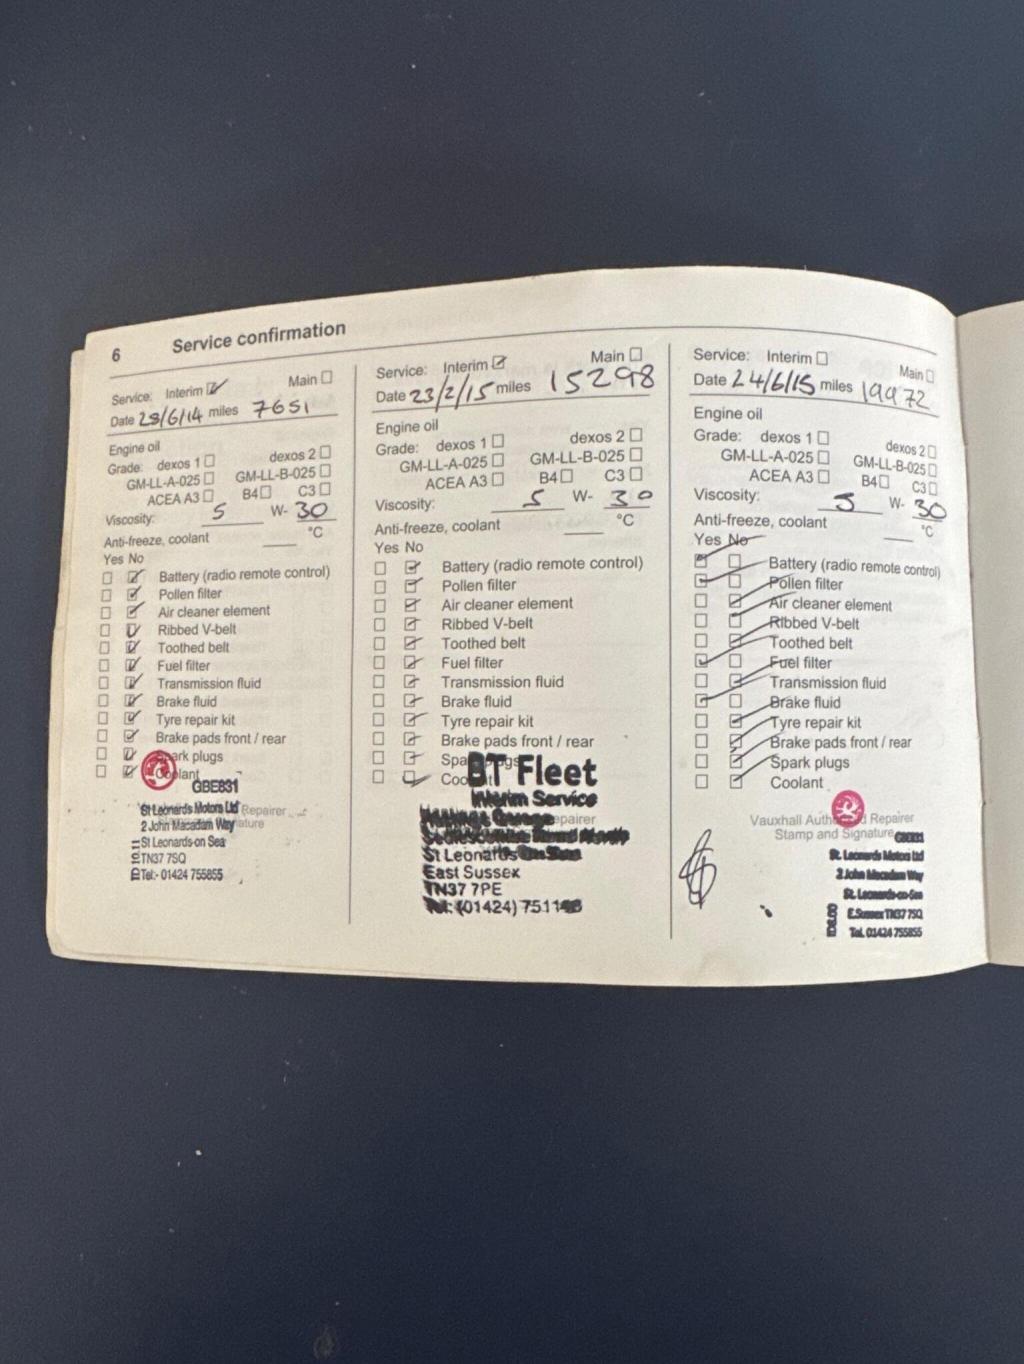 6 Service confirmation
Service: Interim ☑ Main ☐
Date 29/6/14 miles 7651
Engine oil
Grade: dexos 1 ☐ dexos 2 ☐
GM-LL-A-025 ☐ GM-LL-B-025 ☐
ACEA A3 ☐ B4 ☐ C3 ☐
Viscosity: 5 W- 30
Anti-freeze, coolant ____ °C
Yes No
☐ ☑ Battery (radio remote control)
☐ ☑ Pollen filter
☐ ☑ Air cleaner element
☐ ☑ Ribbed V-belt
☐ ☑ Toothed belt
☐ ☑ Fuel filter
☐ ☑ Transmission fluid
☐ ☑ Brake fluid
☐ ☑ Tyre repair kit
☐ ☑ Brake pads front / rear
☐ ☑ Spark plugs
☐ ☑ Coolant
GBE831
St Leonards Motors Ltd Repairer
2 John Macadam Way
St Leonards-on Sea
TN37 7SQ
Tel:- 01424 755855
Service: Interim ☑ Main ☐
Date 23/2/15 miles 15298
Engine oil
Grade: dexos 1 ☐ dexos 2 ☐
GM-LL-A-025 ☐ GM-LL-B-025 ☐
ACEA A3 ☐ B4 ☐ C3 ☐
Viscosity: 5 W- 30
Anti-freeze, coolant ____ °C
Yes No
☐ ☑ Battery (radio remote control)
☐ ☑ Pollen filter
☐ ☑ Air cleaner element
☐ ☑ Ribbed V-belt
☐ ☑ Toothed belt
☐ ☑ Fuel filter
☐ ☑ Transmission fluid
☐ ☑ Brake fluid
☐ ☑ Tyre repair kit
☐ ☑ Brake pads front / rear
☐ ☑ Spark plugs
☐ ☑ Coolant
BT Fleet
Interim Service
St Leonards On Sea
East Sussex
TN37 7PE
Tel: (01424)
Service: Interim ☐ Main ☐
Date 24/6/15 miles 19972
Engine oil
Grade: dexos 1 ☐ dexos 2 ☐
GM-LL-A-025 ☐ GM-LL-B-025 ☐
ACEA A3 ☐ B4 ☐ C3 ☐
Viscosity: 5 W- 30
Anti-freeze, coolant ____ °C
Yes No
☑ ☐ Battery (radio remote control)
☑ ☐ Pollen filter
☐ ☑ Air cleaner element
☐ ☐ Ribbed V-belt
☐ ☑ Toothed belt
☑ ☐ Fuel filter
☐ ☑ Transmission fluid
☑ ☐ Brake fluid
☐ ☑ Tyre repair kit
☐ ☑ Brake pads front / rear
☐ ☑ Spark plugs
☐ ☑ Coolant
Vauxhall Authorised Repairer
Stamp and Signature
St. Leonards Motors Ltd
2 John Macadam Way
St. Leonards-on-Sea
E.Sussex TN37 7SQ
Tel. 01424 755855